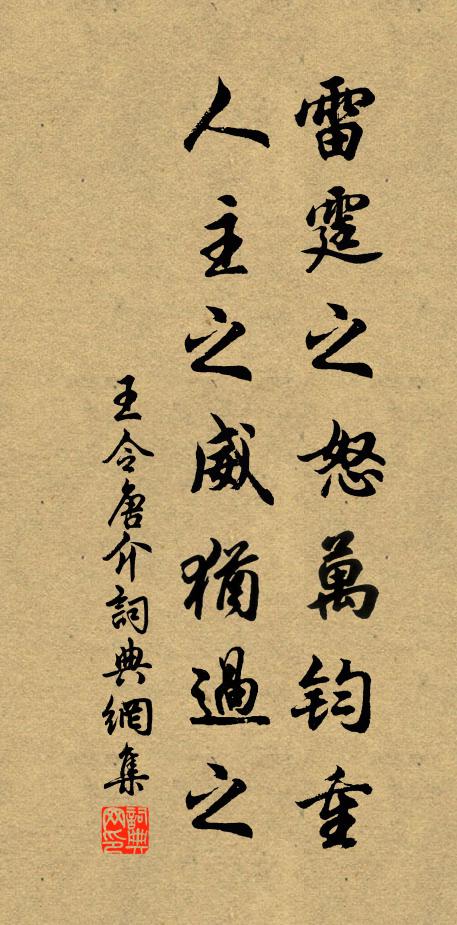 雷霆之怒萬鈞重
人主之威猶過之
王令唐介詞典網集
詞典網印